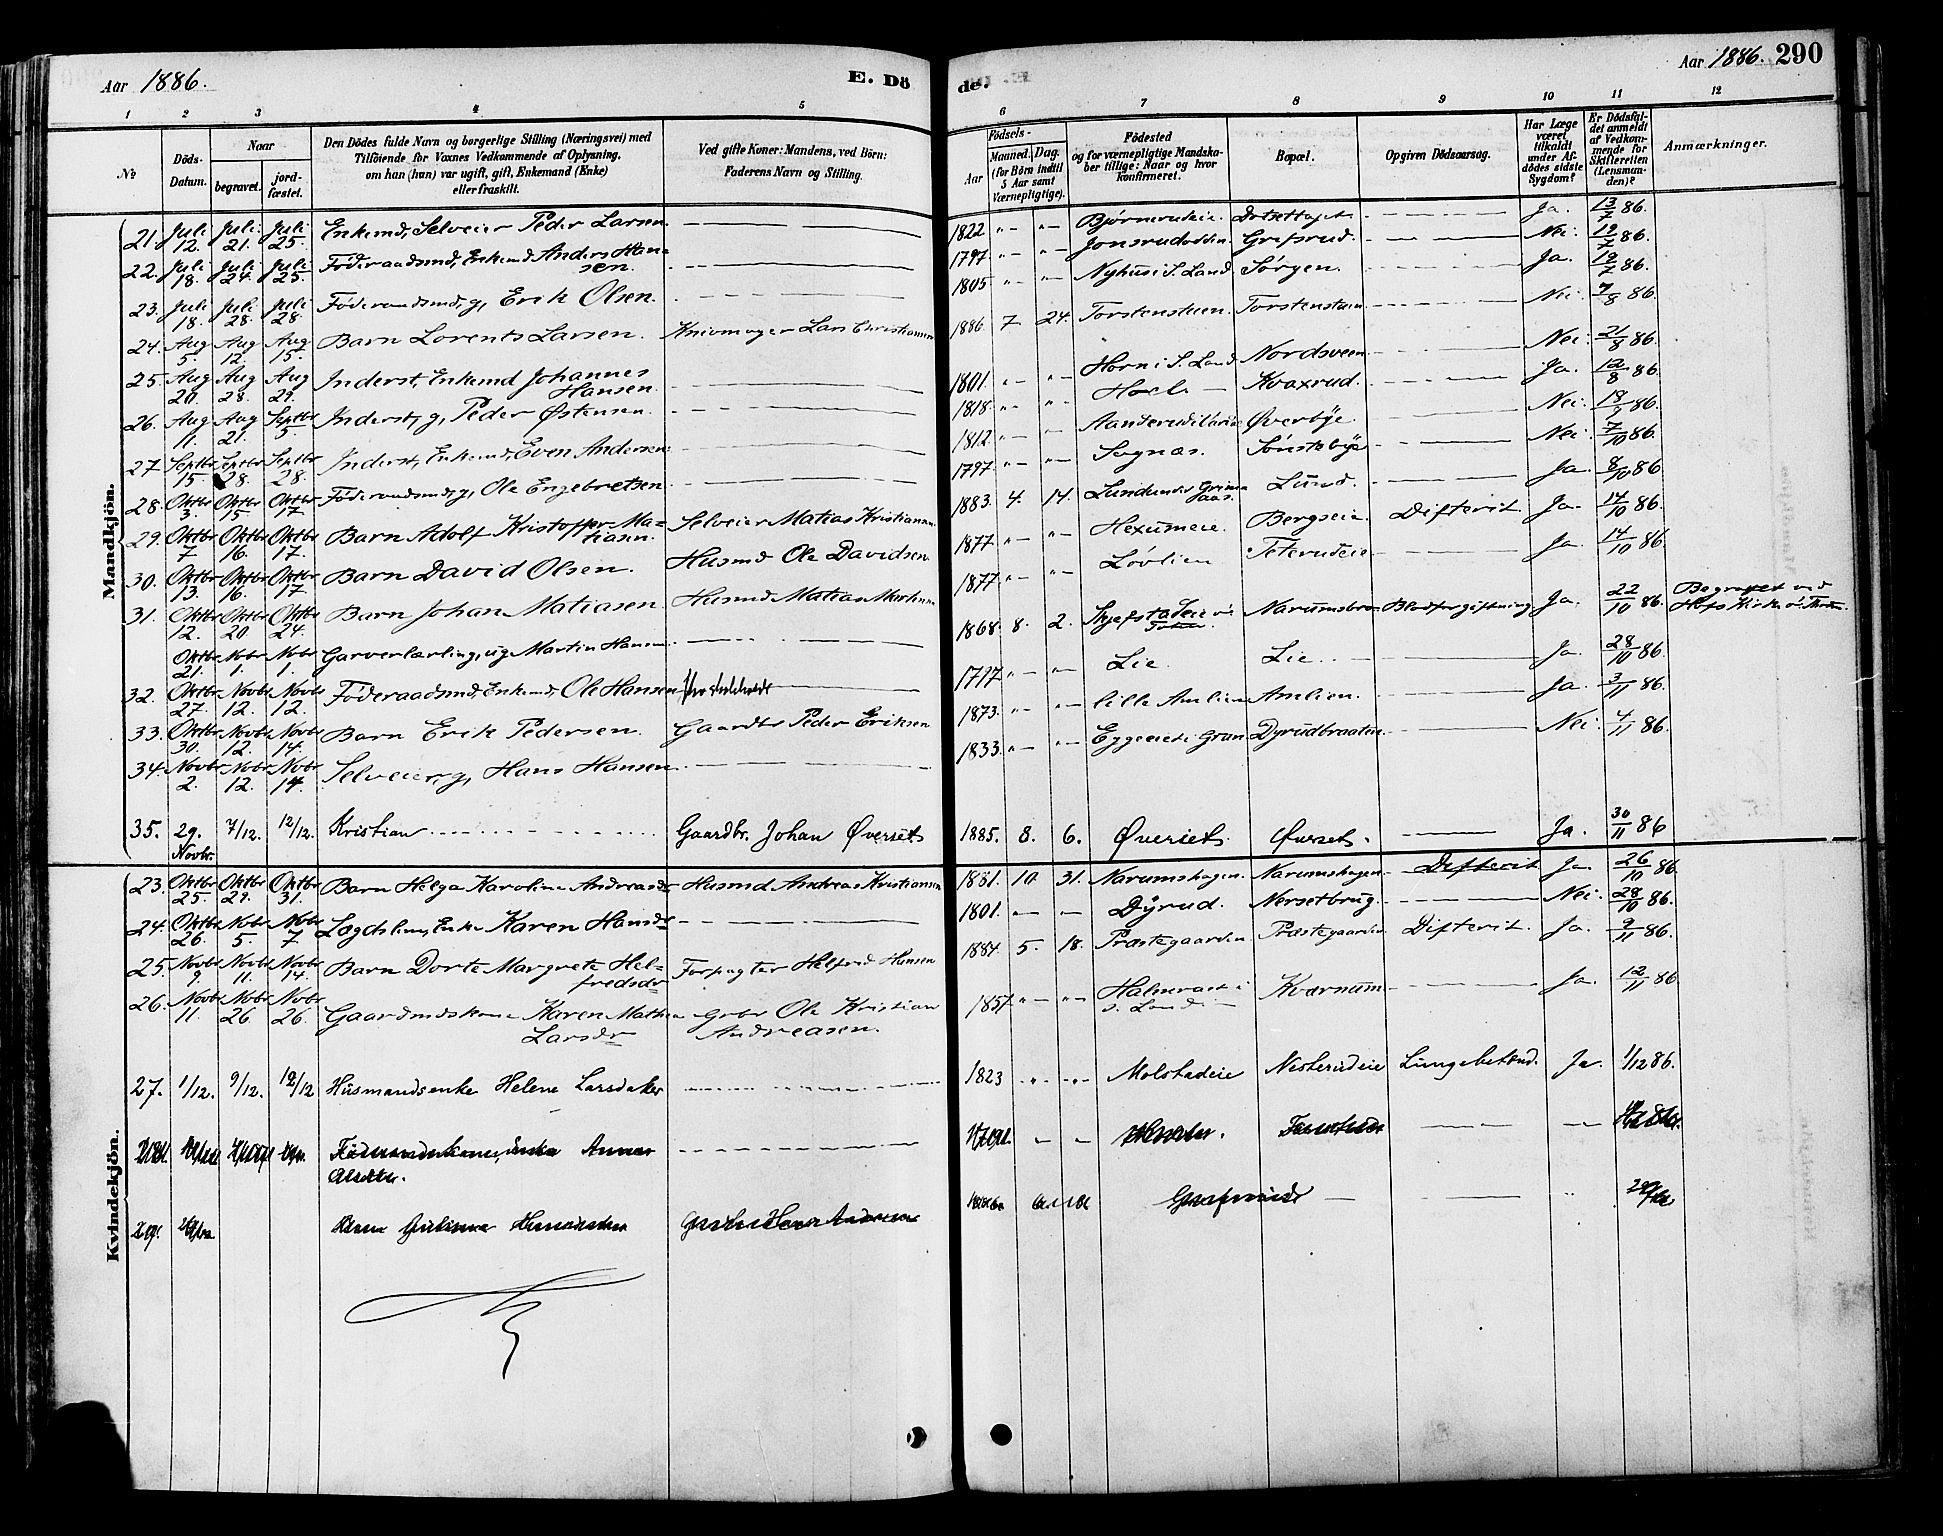 Aar 1886.
E. Dö
de.
Aar 1886. 290
1 2 3 4 5 6 7 8 9 10 11 12
No
Döds-Datum.
Naar
begravet.
jord-fæstet.
Den Dödes fulde Navn og borgerlige Stilling (Næringsvei) med
Tilföiende for Voxnes Vedkommende af Oplysning,
om han (hun) var ugift, gift, Enkemand (Enke)
eller fraskilt.
Ved gifte Koner: Mandens, ved Börn:
Faderens Navn og Stilling.
Födsels-
Aar
Maaned. Dag.
(for Börn indtil
5 Aar samt
Værnepligtige).
Födested
og for værnepligtige Mandska-
ber tillige: Naar og hvor
konfirmeret.
Bopæl.
Opgiven Dödsaarsag.
Har Læge
været
tilkaldt
under Af-
dödes sidste
Sygdom?
Er Dödsfal-
det anmeldt
af Vedkom-
mende for
Skifteretten
(Lensman-
den)?
Anmærkninger.
Mandkjön.
21. Juli 12. Juli 21. Juli 25. Enkemd, Selveier Peder Larsen 1822 Ja. 13/7 86.
22. Juli 18. Juli 24. Juli 25. Föderaadsmd, Enkemd Anders Han-
sen. 1797 Grefsrud. Nei. 19/7 86.
23. Juli 18. Juli 28. Juli 28. Föderaadsmd, g, Erik Olsen. 1805 Nyhus i S. Land Sörgen. Ja. 19/7 86.
24. Aug 5. Aug 12. Aug 15. Barn Lorents Larsen. Lars Christiansen 1886 7 24. Torstensteen. Torstensteen Nei. 7/8 86.
25. Aug 20. Aug 28. Aug 29. Inderst, Enkemd Johannes
Hansen 1801. Horn i S. Land Nordsveen Nei. 21/8 86.
26. Aug 11. Aug 21. Septbr 5. Inderst, g, Peder Østensen. 1818 Kvaxrud. Ja. 12/8 86.
27 Septbr 15 Septbr 28. Septbr 28. Inderst, Enkemd, Even Andersen 1812 Øverbye. Nei. 86.
28. Oktbr 3. Oktbr 15 Oktbr 17 Föderaadsmd, g, Ole Engebretsen 1797. Sognæs. Sönsteby Nei. 7/10 86
29. Oktbr 7 Oktbr 16. Oktbr 17. Barn Adolf Kristoffer Ma-
tiasen. Selveier Matias Kristiansen 1883. 4. 14. Lund. Ja. 8/10 86
30. Oktbr 13. Oktbr 16. Oktbr 17 Barn David Olsen. Husmd Ole Davidsen 1877 Hexumeie. Bergseie. Difterit Ja. 14/10 86.
31. Oktbr 12. Oktbr 20 Oktbr 24. Barn Johan Matiasen Husmd Matias 1877 Lövlien Teterudeie Ja 14/10 86.
Oktbr 21. Nobr 1. Nobr 1. Garverlærling, ug Martin Hansen 1868. 8. 2. Blodforgiftning Ja. 22/10 86. Begravet ved
Hofs Kirke
32. Oktbr 27. Novbr 12. Novbr 12. Föderaadsmd, Enkemd, Ole Hansen 1797 Lie. Lie. Ja. 28/10 86.
33. Oktbr 30. Novbr 12. Novbr 14. Barn Erik Pedersen. Gaardbr Peder Eriksen 1873. lille Amlien Amlien. Ja. 3/11 86.
34. Novbr 2. Nobr 12. Nobr 14. Selveier, g, Hans Hansen 1833. Eggeeie i Gran Dyrudbraaten Nei. 4/11 86
35. 29. Novbr. 7/12. 12/12. Kristian Gaardbr. Johan Øverset 1885. 8. 6. Øverset. Øverset. Ja. 30/11 86
Kvindekjön.
23. Oktbr 25. Oktbr 29. Oktbr 31. Barn Helga Karoline Andreasdr Husmd Andreas Kristiansen 1881. 10. 31. Narumshagen. Narumshagen Difterit Ja. 26/10 86.
24. Oktbr 26. Nobr 5. Nobr 7 Lægdslem, Enke Karen Hansdr 1801. Dyrud. Nersetbrug. Nei. 28/10 86.
25. Novbr 9. Novbr 11. Novbr 14. Barn Dorte Margrete Hel-
fredsdr Forpagter Helfred Hansen 1884. 5. 18. Præstegaarden Præstegaarden Difterit. Ja. 9/11 86.
26. Novbr 11. Nobr 26. Nobr 26. Gaardmdskone Karen Mathea
Larsdr Grbr Ole Kristian
Andreasen. 1857 S. Land Kværnum Ja. 12/11 86
27. 1/12. 9/12. 12/12 Husmandsenke Helene Larsdatter 1823 Molstadeie Nesterudeie Lungebetænd. Ja. 1/12 86.